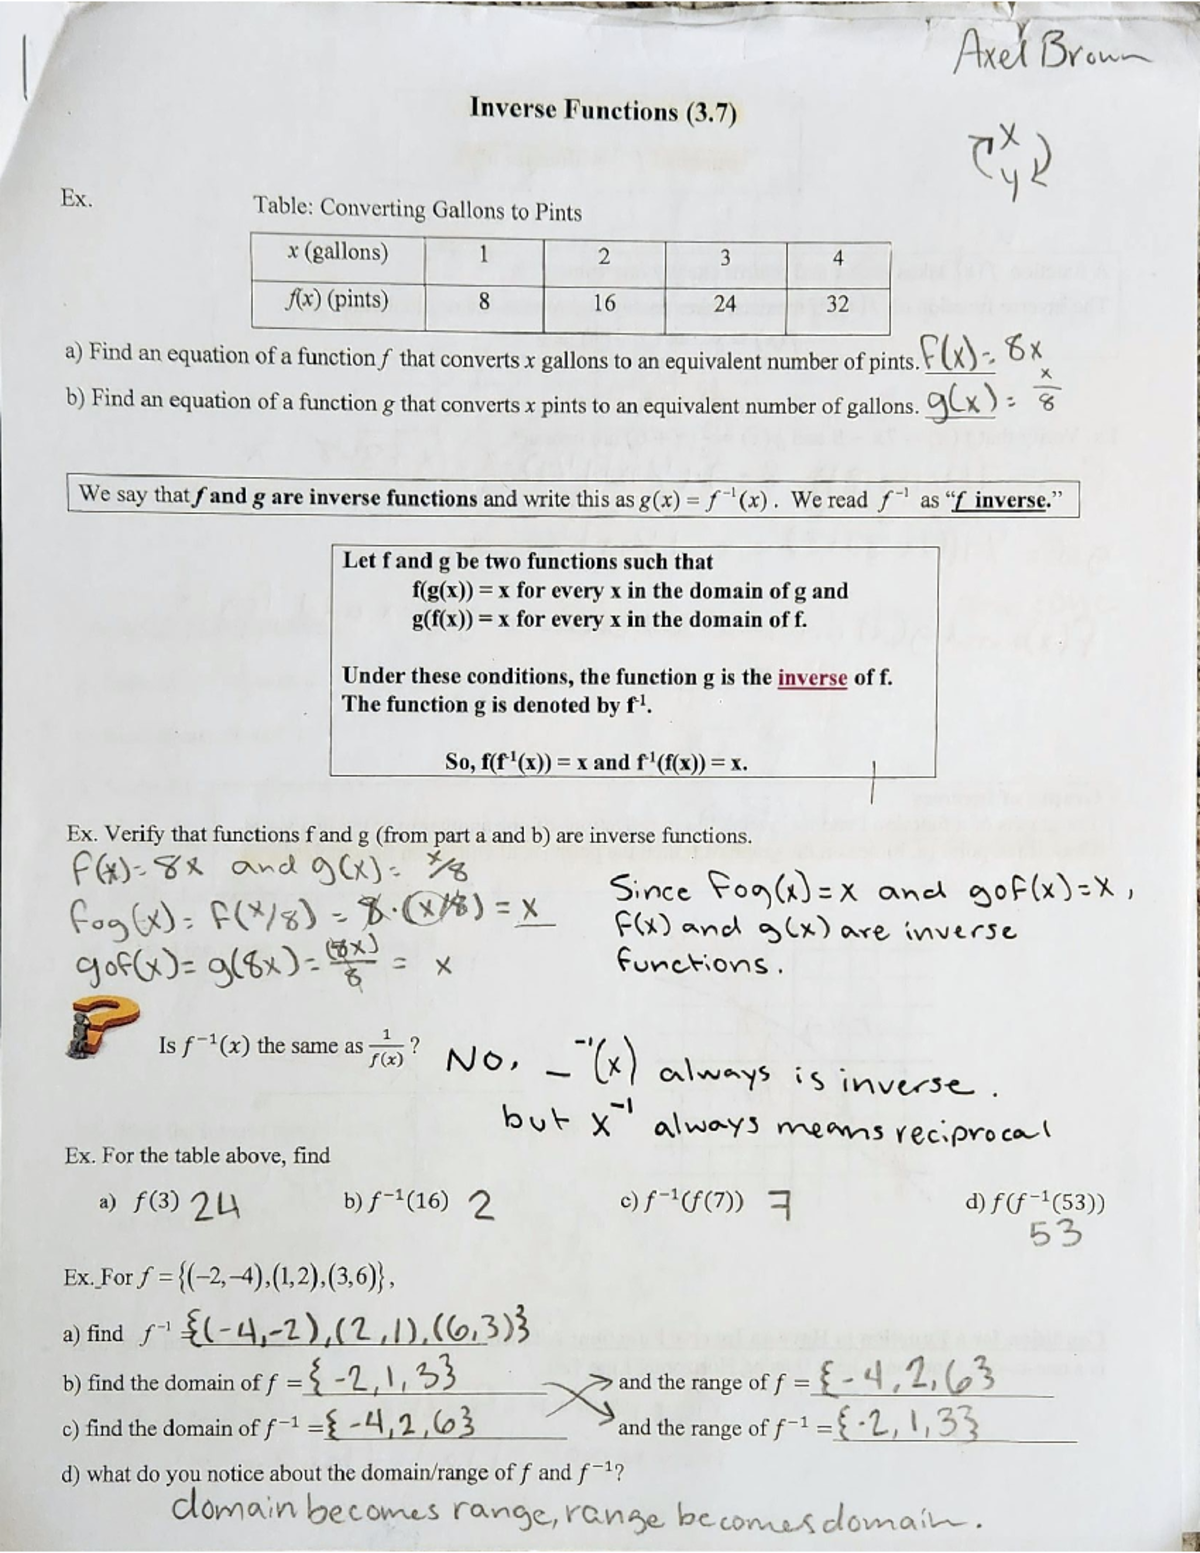 Axel Brown
Inverse Functions (3.7)
x
y
Ex.
Table: Converting Gallons to Pints
x (gallons) 1 2 3 4
f(x) (pints) 8 16 24 32
a) Find an equation of a function f that converts x gallons to an equivalent number of pints. f(x) = 8x
b) Find an equation of a function g that converts x pints to an equivalent number of gallons. g(x) = x/8
We say that f and g are inverse functions and write this as g(x) = f⁻¹(x). We read f⁻¹ as “f inverse.”
Let f and g be two functions such that
f(g(x)) = x for every x in the domain of g and
g(f(x)) = x for every x in the domain of f.
Under these conditions, the function g is the inverse of f.
The function g is denoted by f⁻¹.
So, f(f⁻¹(x)) = x and f⁻¹(f(x)) = x.
Ex. Verify that functions f and g (from part a and b) are inverse functions.
f(x) = 8x and g(x) = x/8
fog(x) = f(x/8) = 8·(x/8) = x
gof(x) = g(8x) = (8x)/8 = x
Since fog(x) = x and gof(x) = x,
f(x) and g(x) are inverse
functions.
Is f⁻¹(x) the same as 1/f(x) ? No, _⁻¹(x) always is inverse.
but x⁻¹ always means reciprocal
Ex. For the table above, find
a) f(3) 24 b) f⁻¹(16) 2 c) f⁻¹(f(7)) 7 d) f(f⁻¹(53))
53
Ex. For f = {(–2,–4),(1,2),(3,6)},
a) find f⁻¹ {(-4,-2),(2,1),(6,3)}
b) find the domain of f = {-2,1,3} and the range of f = {-4,2,6}
c) find the domain of f⁻¹ = {-4,2,6} and the range of f⁻¹ = {-2,1,3}
d) what do you notice about the domain/range of f and f⁻¹?
domain becomes range, range becomes domain.